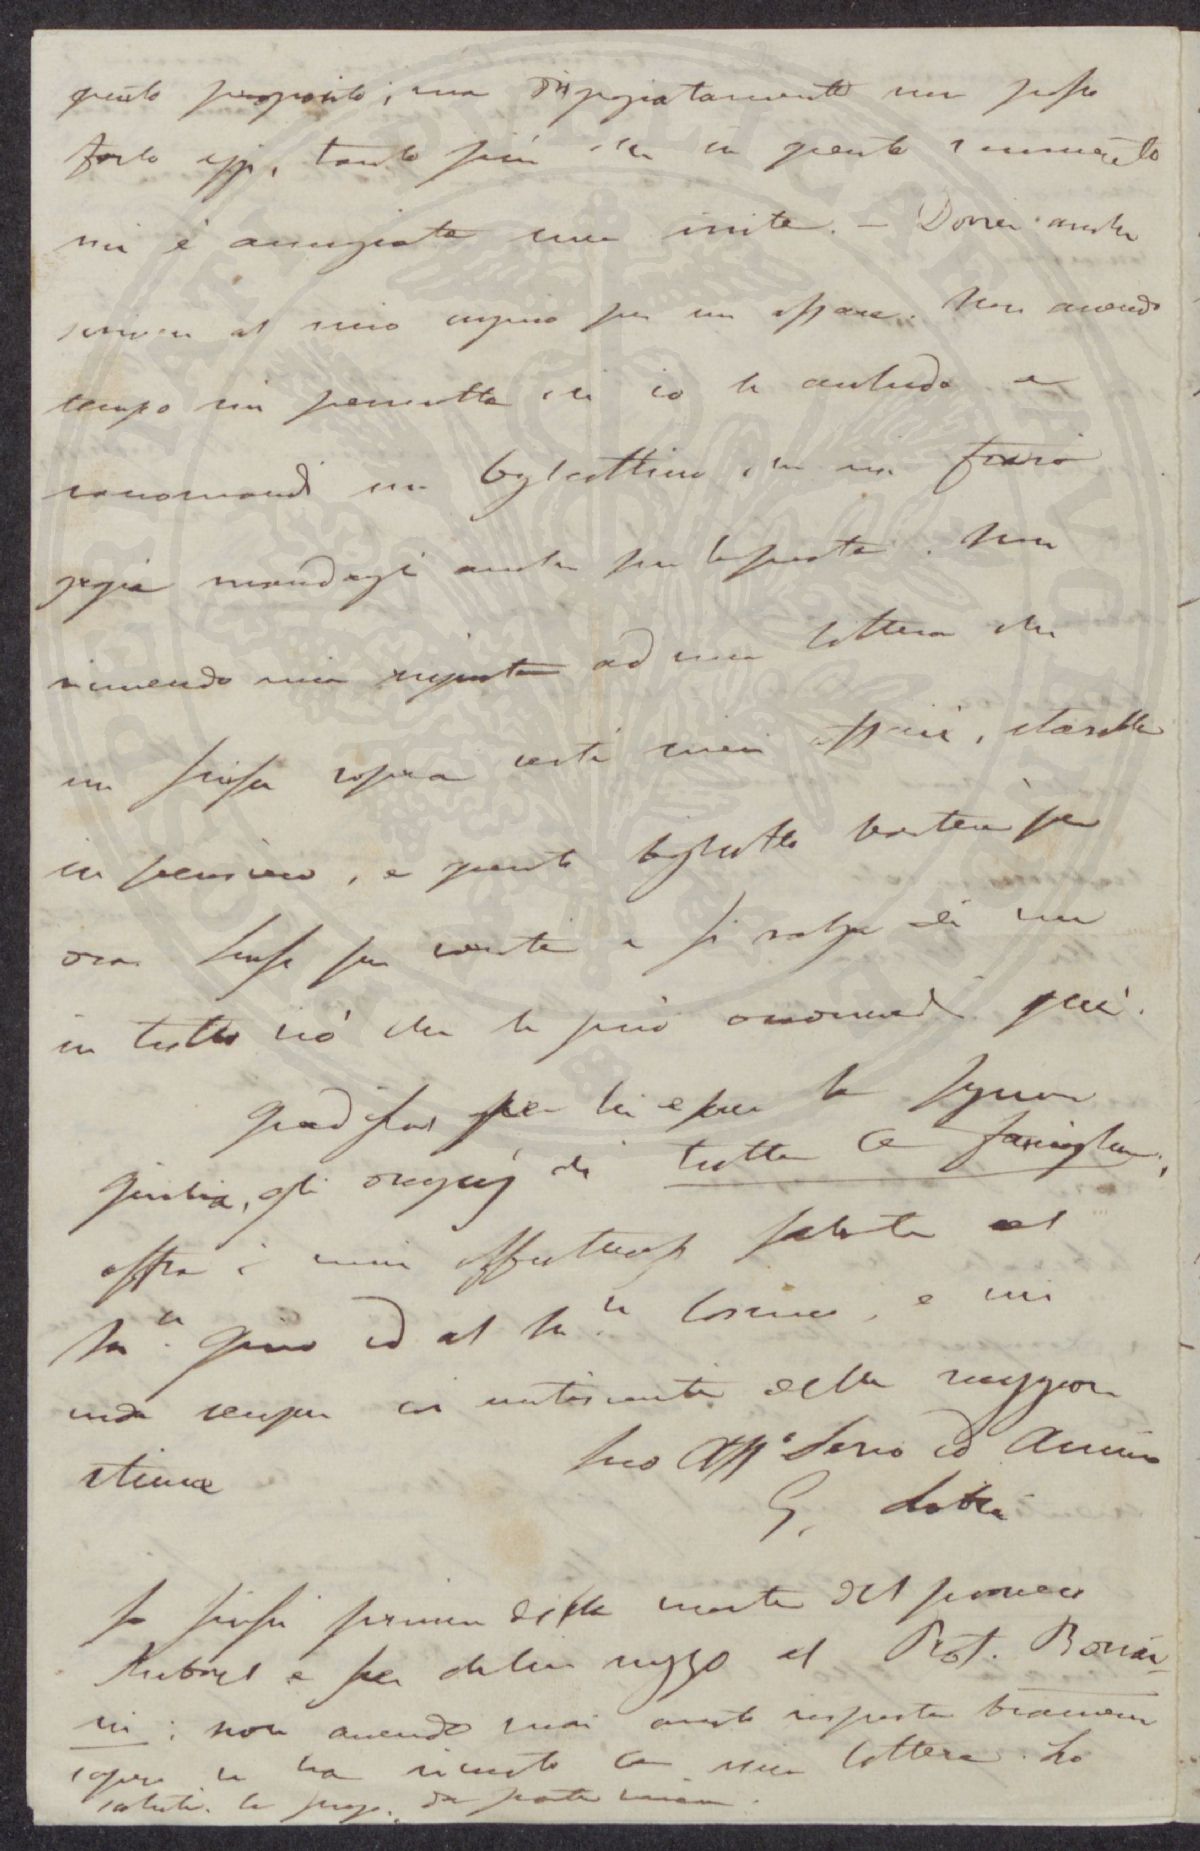 questo proposito; ma disgraziatamente non posso
farlo oggi, tanto più che in questo momento
mi è annunziata una visita. — Dovrei anche
scrivere al mio cugino per un affare. Non avendo
tempo mi permetta che io le accluda e
raccomandi un bigliettino che mi farà
grazia mandargli anche per la posta. Non
ricevendo mai risposta ad una lettera che
le scrissi sopra certi miei affari, starebbe
in pensiero, e questo biglietto basterà per
ora. Scusi per carità e si valga di me
in tutto ciò che le può occorrere di quì.
Gradisca per lei e per la Signora
Giulia, gli ossequj di tutta la famiglia,
offra i miei affettuosi saluti al
Sr. Gino ed al Sr. Cosimo, e mi
creda sempre coi sentimenti della maggiore
stima
Suo Aff.o Servo ed Amico
G.
Le scrissi prima della morte del povero
e per di lui mezzo al Prof. Bonai-
ni: non avendo mai avuto risposta bramerei
sapere se ha ricevuto la mia lettera. Lo
saluti, la prego, da parte mia.